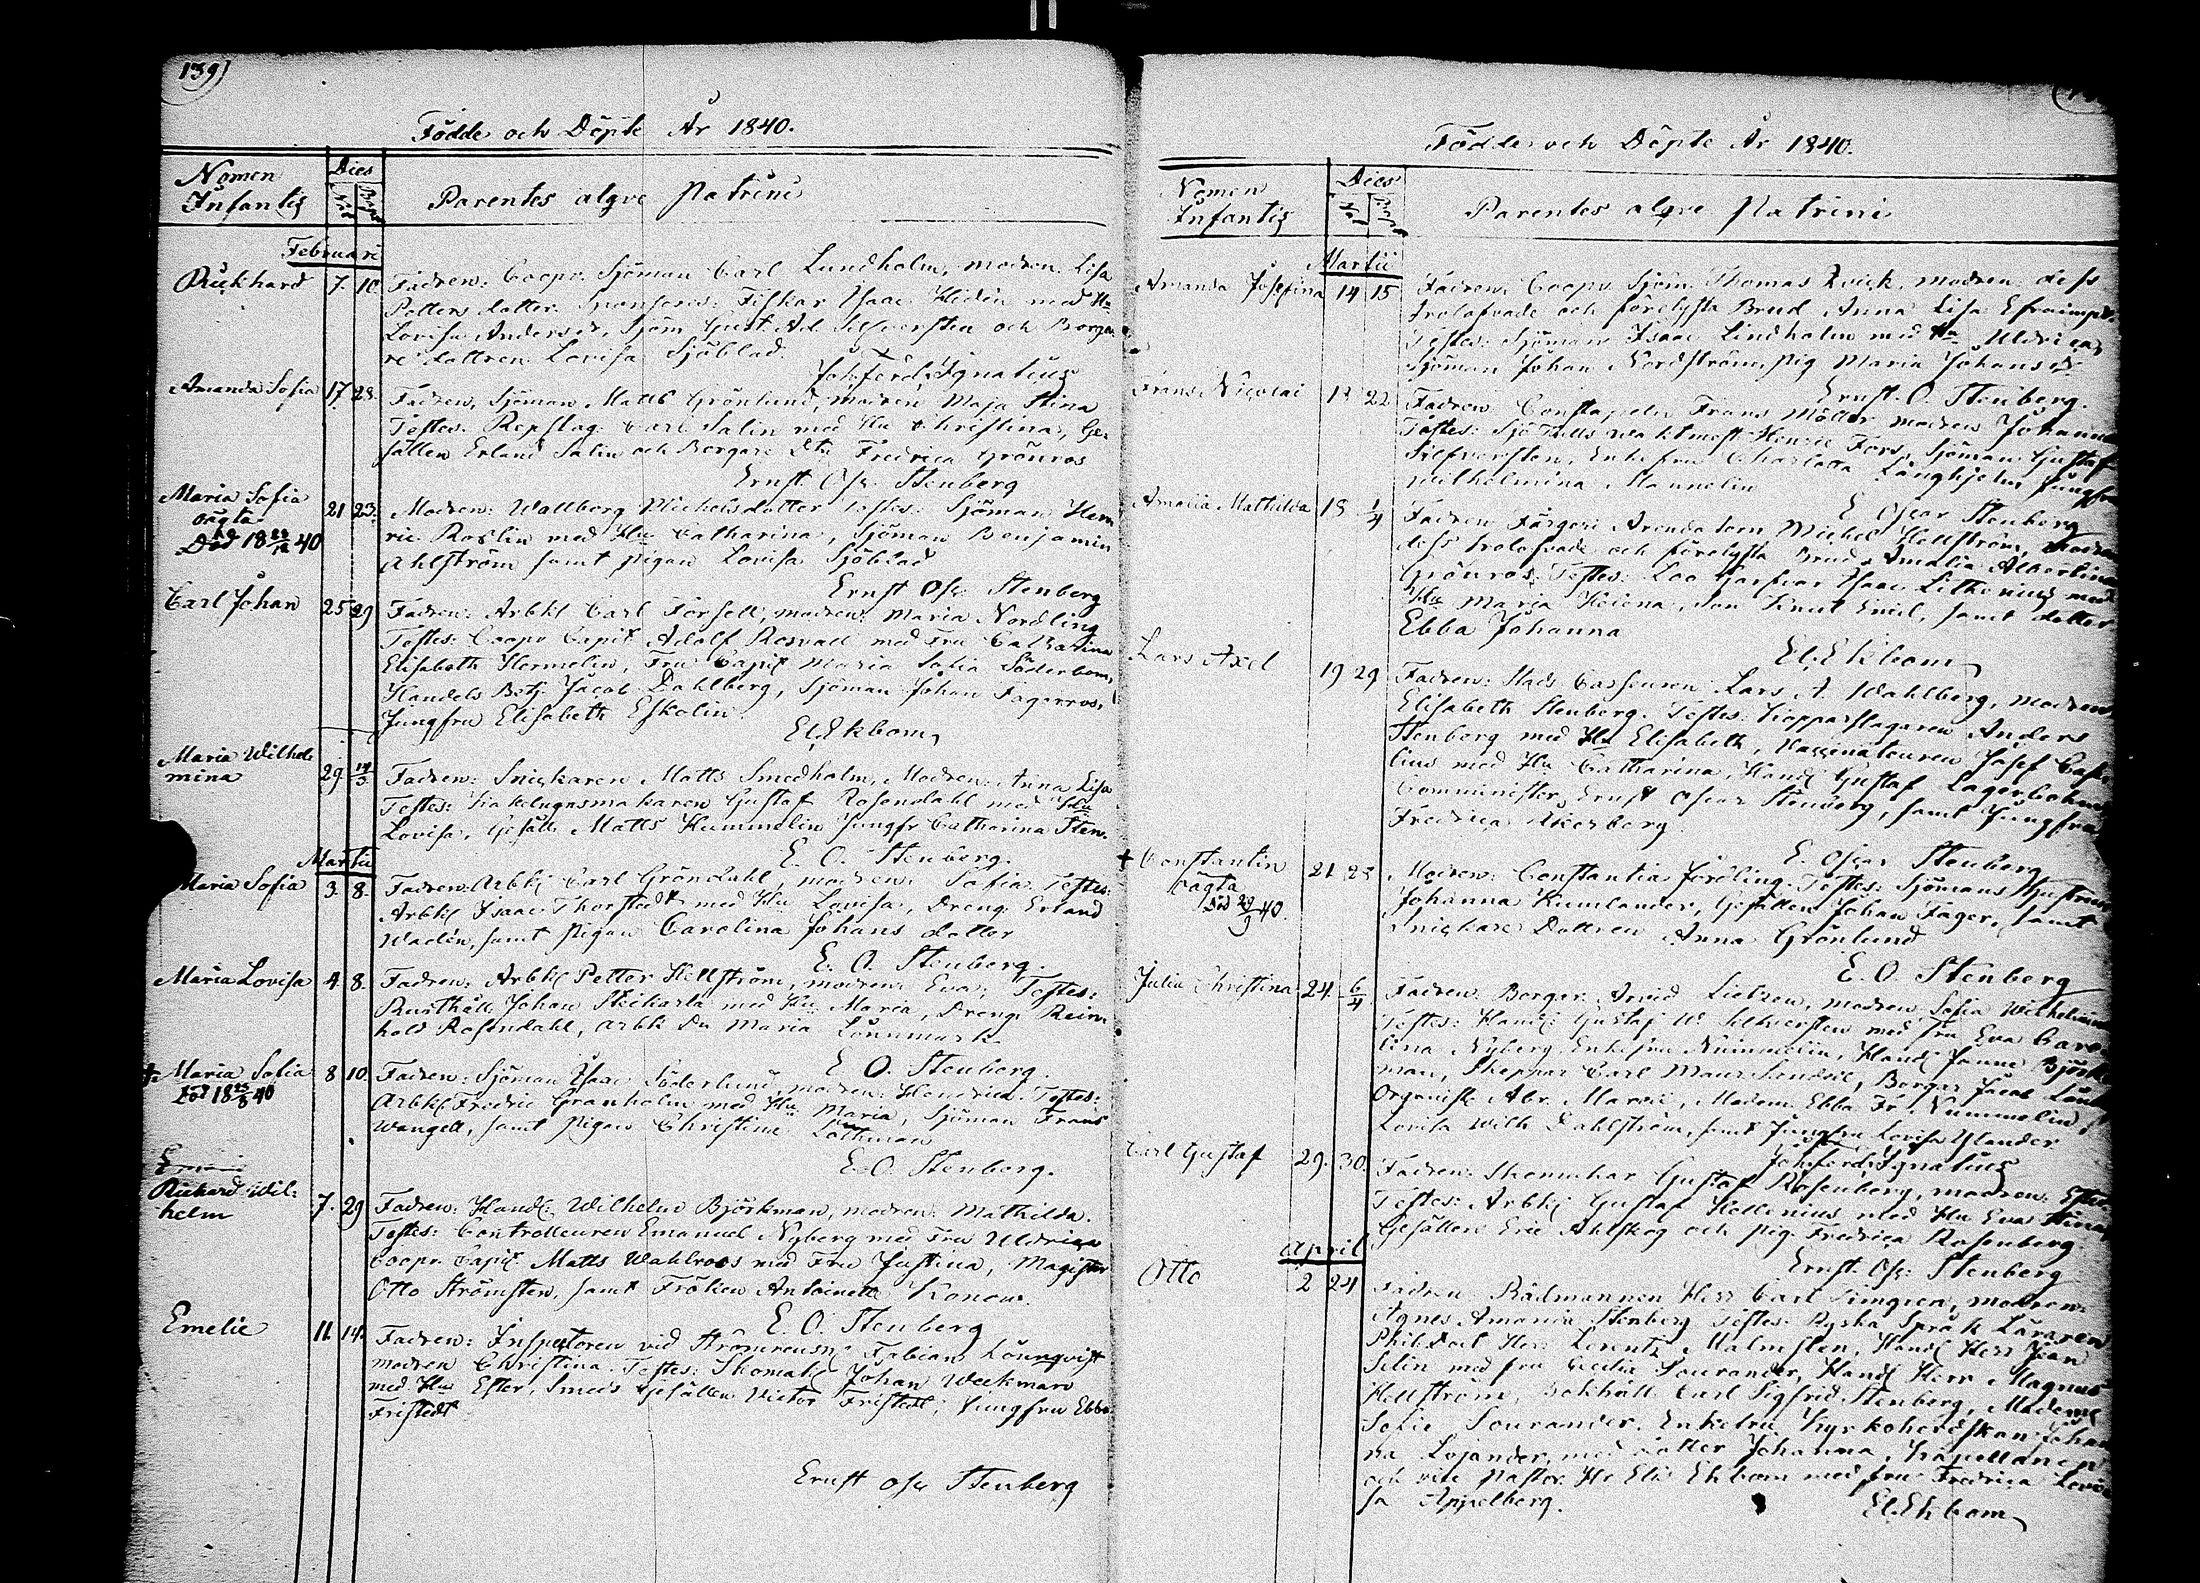 139)
Födde och Döpte År 1840.
Nomen Infantis
Dies
Nat. Bapt.
Parentes atqve Patrini
Februarii
Rickhard 7. 10. Fadren: Coopv. Sjöman Carl Lundholm, modren Lisa
Petters dotter. Fiskar Isaac Hidén med Hu
Lovisa Anders dr, Sjöm Gust. Ad. Silfversten och Borga
re dottren Lovisa Sjöblad.
Joh. Ferd. Ignatius
Amanda Sofia 17. 23. Fadren, Sjöman Matts Grönlund, modren Maja Stina
Testes: Repslag. Carl Salin med Hu Christina, Ge-
sällen Erland Salin och Borgare Dtr Fredrica Grönros
Ernst Osc. Stenberg
Maria Sofia 21 23. Modren: Wallborg Michelsdotter Testes: Sjöman Hen
oägta
Död 18 40
ric Roslin med Hu Catharina, Sjöman Benjamin
Ahlström samt pigan Lovisa Sjöblad
Ernst Osc. Stenberg
Carl Johan 25 29 Fadren: Arbkl Carl Forsell, modren: Maria Nordling
Testes: Coopv. Capit Adolf Rosvall med Fru Catharina
Elisabeth Hermelin, Fru Capit Maria Sofia Söderbom,
Handels Betj. Jacob Dahlberg, Sjöman Johan Fagerros,
Jungfru Elisabeth Eskolin.
El. Ekbom
Maria Wilhel
mina 29. 14/3 Fadren: Snickaren Matts Smedholm, Modren: Anna Lisa
Testes: Kakelugnsmakaren Gustaf Rosendahl med Hu
Lovisa, Gesäll. Matts Hummelin Jungfr Catharina Sten.
E. O. Stenberg.
Martii
Maria Sofia 3. 8. Fadren: Arbkl Carl Gröndahl, modren: Sofia. Testes:
Arbkl Isaac Thorstedt med Hu Lovisa, Dreng Erland
Wadén, samt pigan Carolina Johans dotter
E. O. Stenberg.
Maria Lovisa 4. 8. Fadren: Arbkl Petter Hellström, modren: Eva, Testes:
Rusthåll. Johan Skikarla med Hu Maria, Dreng Rein
hold Rosendahl, Arbk Dr Maria Lönnmark
E. O. Stenberg.
+ Maria Sofia 8 10. Fadren: Sjöman Isaac Söderlund, modren: Hendrica. Testes:
Död 18 25/8 40
Arbkl Fredric Granholm med Hu Maria, Sjöman Frans
Wangell, samt pigan Christina Löthman
E. O. Stenberg.
Richard Wil-
helm 7. 29 Fadren: Handl: Wilhelm Björkman, modren: Mathilda.
Testes: Controlleuren Emanuel Nyberg med Fru Uldrica
Coopv. Capit Matts Wahlroos med Fru Justina, Magister
Otto Strömsten, samt Fröken Antoinette Konow.
E. O. Stenberg
Emelie 11. 14. Fadren: Inspectoren vid Strömrensn: Fabian Lönnqvist
modren Christina. Testes: Skomak: Johan Weckman
med Hu Ester, Smeds Gesällen Victor Fristedt, Jungfru Ebba
Fristedt
Ernst Osc Stenberg
Födde och Döpte År 1840.
Nomen Infantis
Dies
Nat. Bapt.
Parentes atqve Patrini
Martii
Amanda Josefina 14 15 Fadren: Coopv. Sjöm. Thomas Qvick, modren dess
trolofvade och förelysta Brud Anna Lisa
Testes: Sjöman Isaac Lindholm med Hu Uldrica,
Sjöman Johan Nordström, pig Maria Johans dr
Ernst. O. Stenberg.
Frans Nicolai 13 22 Fadren Constapeln Frans Möller modren Johanna
Testes: Sjö Tulls waktmest. Henric Fors, Sjöman Gustaf
Silfversten, Enkefru Charlotta Långhjelm Jungfru
Wilhelmina Mannelin
E Oscar Stenberg
Amalia Mathilda 18 1/4 Fadren Färgeri Arendatorn Michel Hellström, Modren
dess trolofvade och förelysta Brud Amalia Albertina
Grönros. Testes: Loo Garfvar Isaac Lithenius med
Hu Maria Helena, Son Knut Emil, samt dotter
Ebba Johanna
El. Ekbom
Lars Axel 19 29 Fadren: Stads Casseuren Lars A. Wahlberg, modren
Elisabeth Stenberg. Testes: Kopparslagaren Anders
Stenberg med Hu Elisabeth, Vaccinateuren Josef
lius med Hu Catharina, Handl Gustaf Lagerbohm
Comminister Ernst Oscar Stenberg, samt Jungfru
Fredrica Åkerberg
E. Oscar Stenberg
+ Constantin 21 23 Modren: Constantia Jördling. Testes: Sjömans Hustrun
oägta
Död 29/9 40.
Johanna Kumlander, Gesällen Johan Fager, samt
Snickare Dottren Anna Grönlund
E. O. Stenberg
Julia Christina 24. 6/4 Fadren: Borgar. Arvid Lietzen, modren Sofia Wilhelmina
Testes: Handl: Gustaf W. Silfversten med Fru Eva Caro-
lina Nyberg, Enkefru Nummelin, Handl Janne Björk
man, Skeppar Carl Maur. Sundell, Borgar Jacob
Organist. Abr. Marcel, Madem. Ebba Fr. Nummelin,
Lovisa Wilh Dahlström, samt Jungfru Lovisa Ylander
Joh. Ferd. Ignatius
Carl Gustaf 29. 30. Fadren: Skomakar Gustaf Rosenberg, modren:
Testes: Arbkl Gustaf Hellenius med Hu Eva Stina,
Gesällen Eric Ahlskog och pig. Fredrica Rosenberg.
Ernst. Osc. Stenberg
April
Otto 2 24 Fadren Rådmannen Herr Carl Timgren, modren:
Agnes Amanda Stenberg Testes: Ryska Språk Läraren
Phil. Doct Herr Lorentz Malmsten, Handl Herr Jean
Selin med fru Cecilia Sourander, Handl Herr Magnus
Hellström, Bokhåll Carl Sigfrid Stenberg, Madem.
Sofie Sourander. Enkefru Kyrkoherdskan Johan
na Lojander med dotter Johanna, Kapellanen
och vice Pastor Hr Elis Ekbom med fru Fredrica Lovi
sa Appelberg.
El. Ekbom